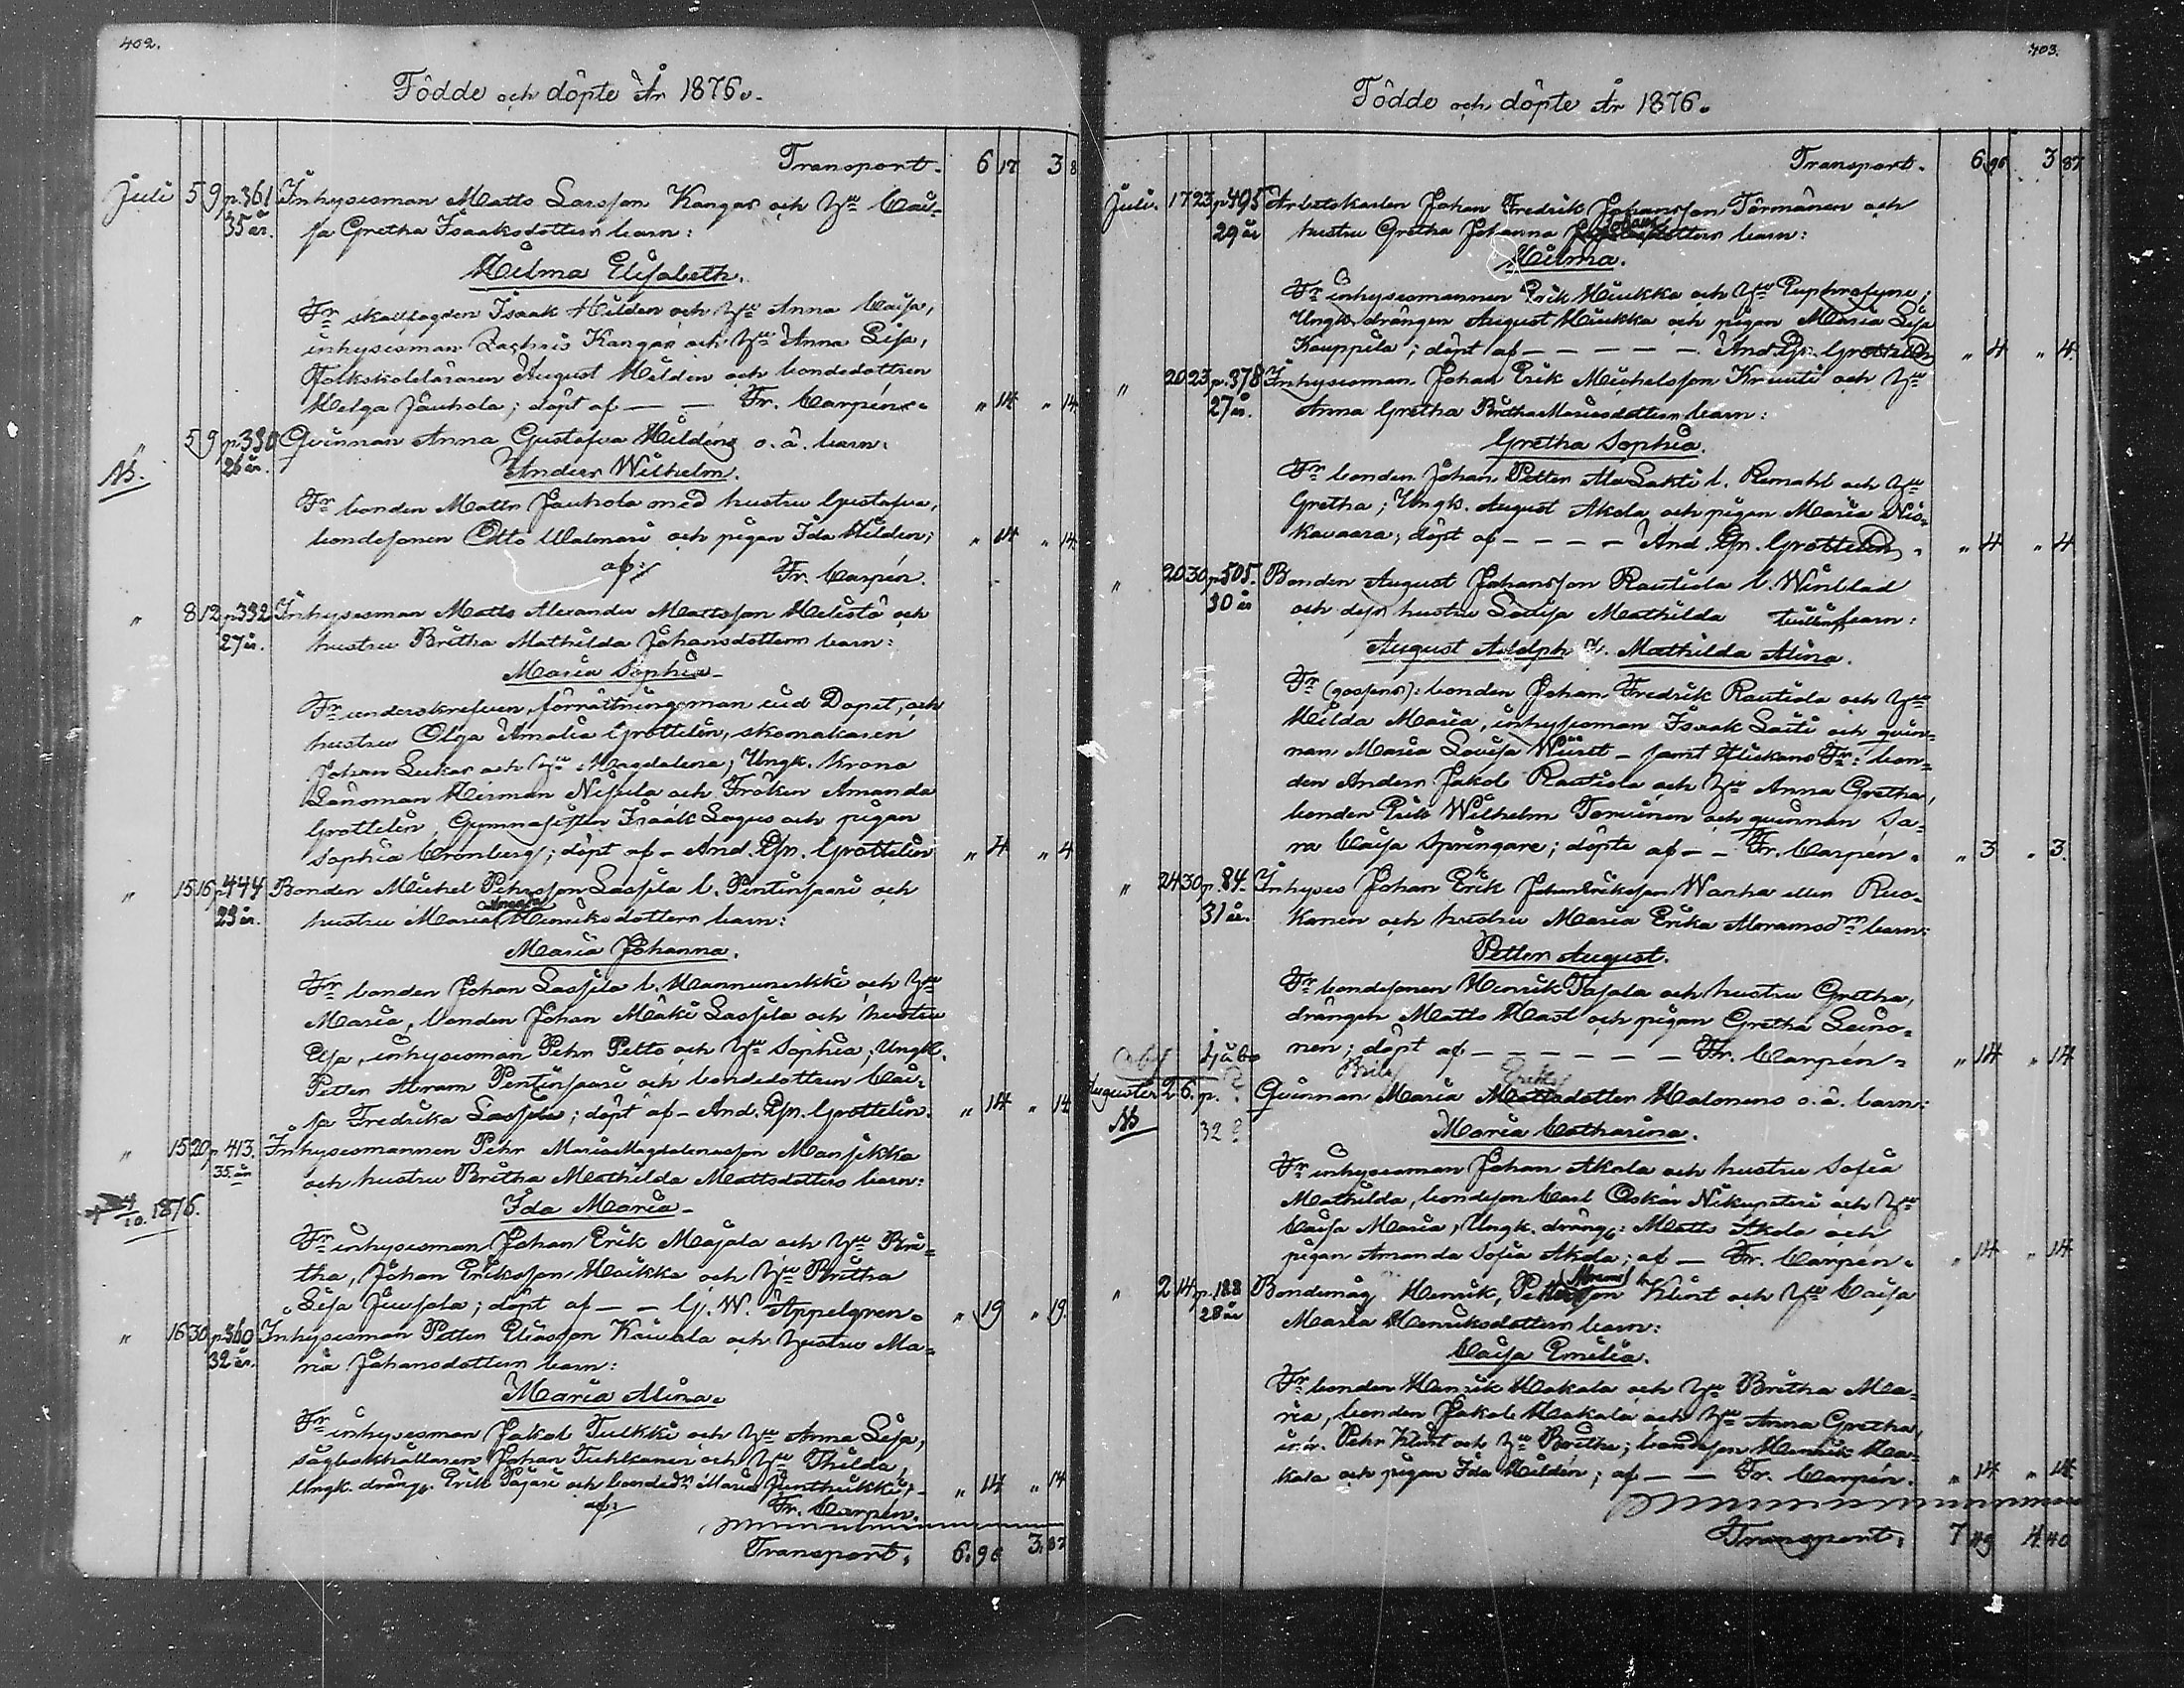 402.
Födde och döpte År 1876.
Transport. 6 17 3 8
Juli 5 9 p.361 Inhysesman Matts Larsson Kangas och Hu Cai-
35 år. sa Gretha Isaaksdotters barn:
Hilma Elisabeth.
Fr skallfogden Isaak Hilden och Hu Anna Caisa,
inhysesman Zachris Kangas och Hu Anna Lisa,
Folkskoleläraren August Hilden och bondedottren
Helga Jauhola; döpt af — — Fr. Carpén. " 14 " 14
" 5 9 p.380 Qvinnan Anna Gustafva Hildéns o.ä. barn:
Ns. 26 år. Anders Wilhelm.
Fr bonden Matts Jauhola med hustru Gustafva,
bondesonen Otto Walmari och pigan Ida Hilden; " 14 " 14
af: Fr. Carpén.
" 8 12 p.332 Inhysesman Matts Alexander Mattsson Helistö och
27 år. hustru Britha Mathilda Johansdotters barn:
Maria Sophia
Fr underskrefven, förrättningsman vid Dopet, och
hustru Olga Amalia Grottelin, skomakaren
Johan Lukas och Hu Magdalena; Ungk. Krono
Länsman Herman Nissila och Fröken Amanda
Grottelin, Gymnasisten Isaak Lagus och pigan
Sophia Cronberg; döpt af – And. Gr. Grottelin " 4 " 4
" 15 16 p.444 Bonden Michel Pehrsson Lassila l. Pentinsaari och
29 år. hustru Maria Amanda Henriksdotters barn:
Maria Johanna.
Fr bonden Johan Lassila l. Hannunerkki och Hu
Maria, bonden Johan Mäki Lassila och hustru
Elsa, inhysesman Pehr Petto och Hu Sophia; Ungk.
Petter Abram Pentinsaari och bondedottren Cai-
sa Fredrika Lassila; döpt af – And. Gr. Grottelin. " 14 " 14
" 15 20 p.413. Inhysesmannen Pehr MariaMagdalenasson Mansikka
35 år och hustru Britha Mathilda Mattsdotters barn:
10. 1876. Ida Maria
Fr inhysesman Johan Erik Majala och Hu Bri-
tha, Johan Eriksson Haikka och Hu Britha
Lisa Juusola; döpt af — — G. W. Appelgren. " 19 " 19.
" 16 30 p.360 Inhysesman Petter Eliasson Kaivala och hustru Ma-
32 år. ria Johansdotters barn:
Maria Alina.
Fr inhysesman Jakob Tulkki och Hu Anna Lisa,
Johan Tuhkanen och Hu Thilda,
Ungk. dräng. Erik Pajari och Maria Junttrikki; " 14 " 14
af: Fr. Carpén.
Transport. 6. 96 3. 87
403.
Födde och döpte År 1876.
Transport. 6 96 3 87
Juli. 17 23 p.495 Arbetskarlen Johan Fredrik Johansson Törmänen och
29 år hustru Gretha Johanna Johansdotters barn:
Hilma.
Fr inhysesmannen Erik Hiukka och Hu Euphrosyne;
Ungk. drängen August Hiukka och pigan Maria Lisa
Kauppila; döpt af — — — — — And. Gr. Grottelin " 4 " 4.
" 20 23 p.378 Inhysesman Johan Erik Michelsson Kruuti och Hu
27 år. Anna Gretha BrithaMariasdotters barn:
Gretha Sophia.
Fr bonden Johan Petter AlaLahti l. Rimahl och Hu
Gretha; Ungk. August Akola och pigan Maria Nis-
kavaara; döpt af — — — — And. Gr. Grottelin. " 4 " 4
" 20 30 p.505. Bonden August Johansson Rautiola l. Winblad
30 år och dess hustru Lovisa Mathilda tvillingbarn:
August Adolph & Mathilda Alina.
Fr (gossens): bonden Johan Fredrik Rautiola och Hu
Hilda Maria, inhysesman Isaak Laiti och qvin-
nan Maria Lovisa Wiirst – samt flickans Fr: bon-
den Anders Jakob Rautiola och Hu Anna Gretha,
bonden Erik Wilhelm Torvinen och qvinnan Sa-
ra Caisa Springare; döpte af — — Fr. Carpén. " 3 " 3.
" 24 30 p.84. Inhyses Johan Erik JohanEriksson Wanha eller Ruo-
31 år. kanen och hustru Maria Erika Abramsdrs barn:
Petter August.
Fr bondesonen Henrik Pajala och hustru Gretha,
drängen Matts Hast och pigan Gretha Leino-
nen; döpt af — — — — — — Fr. Carpén. " 14 " 14
Augusti 2 6. p. Qvinnan Maria Mattsdotter Halonens o.ä. barn:
Ns 32 Maria Catharina.
Fr inhysesman Johan Akola och hustru Sofia
Mathilda, bondeson Carl Oskar Nikupeteri och Hu
Caisa Maria, Ungk. dräng: Matts Akola och
pigan Amanda Sofia Akola; af — Fr. Carpén. " 14 " 14
" 2 14 p.188 Bondemåg Henrik Klint och Hu Caisa
28 år Maria Henriksdotters barn:
Caisa Emilia.
Fr bonden Henrik Hakala och Hu Britha Ma-
ria, bonden Jakob Hakala och Hu Anna Gretha,
Pehr Klint och Hu Britha; bondeson Henrik Ha-
kala och pigan Ida Hildén; af — — Fr. Carpén. " 14 " 14
Transport: 7 49 4 40